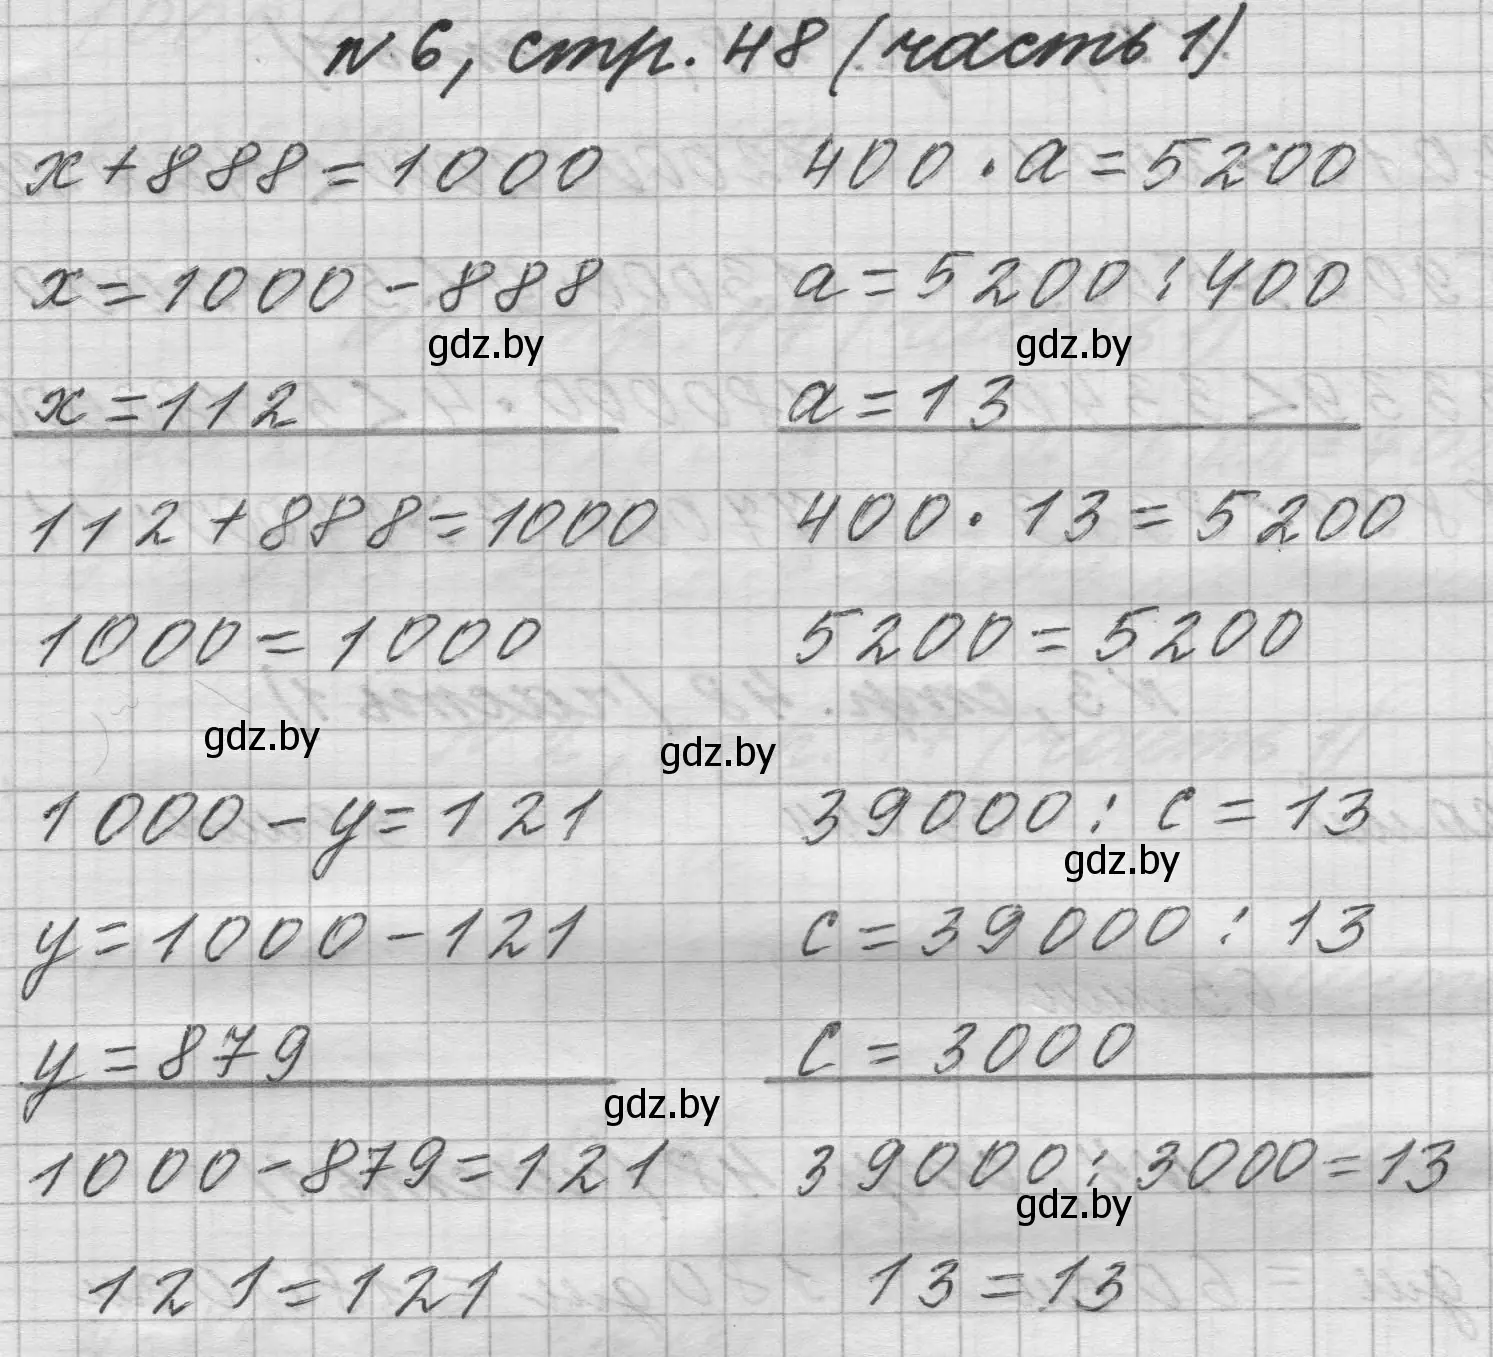 №6, стр. 48 (часть 1)
x+888=1000
x=1000-888
gdz.by
x=112
112+888=1000
1000=1000
400·a=5200
a=5200:400
gdz.by
a=13
400·13=5200
5200=5200
gdz.by
gdz.by
1000-y=121
y=1000-121
y=879
gdz.by
1000-879=121
121=121
39000:c=13
gdz.by
c=39000:13
c=3000
39000:3000=13
gdz.by
13=13